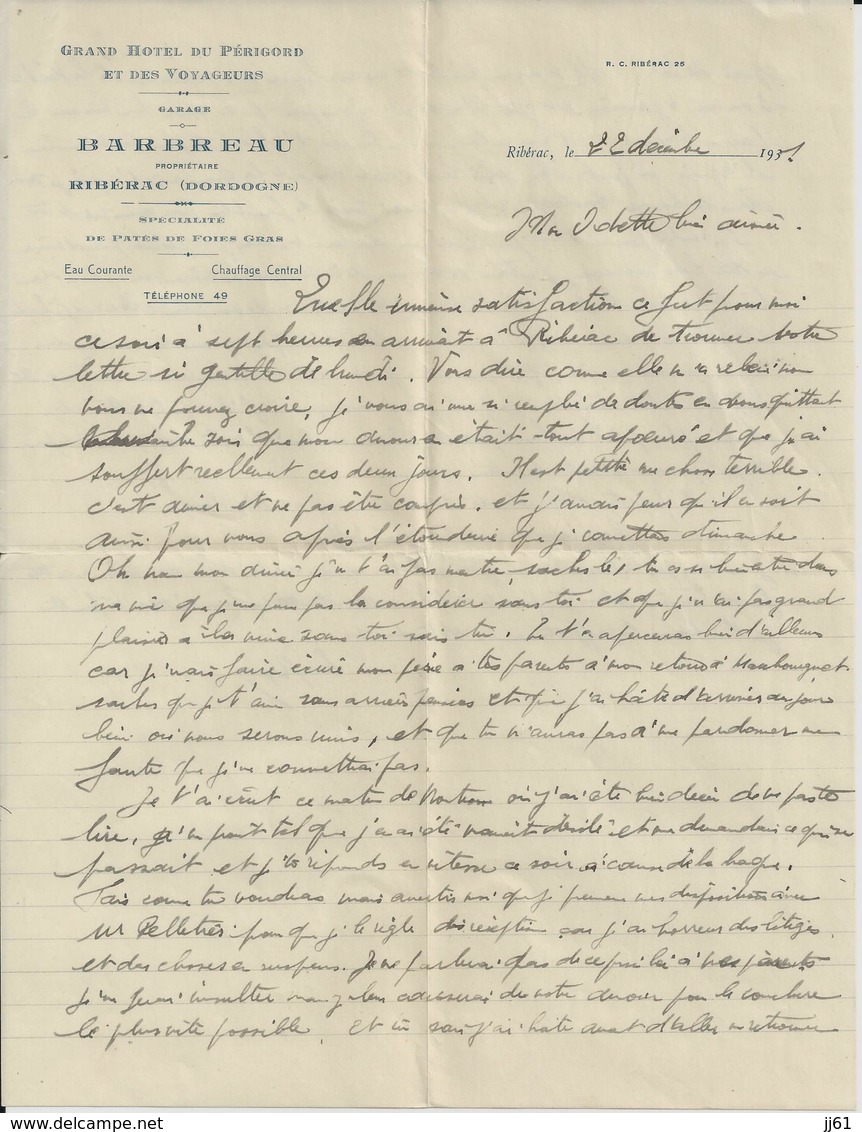 GRAND HOTEL DU PÉRIGORD
ET DES VOYAGEURS
GARAGE
BARBREAU
PROPRIÉTAIRE
RIBÉRAC (DORDOGNE)
SPÉCIALITÉ
DE PATÉS DE FOIES GRAS
Eau Courante Chauffage Central
TÉLÉPHONE 49
R. C. RIBÉRAC 25
Ribérac, le 22 décembre 1931
Mon Odette bien aimée.
Quelle immense satisfaction ce fut pour moi
ce soir à sept heures en arrivant à Ribérac de trouver votre
lettre si gentille de lundi. Vous dire comme elle
vous ne pouvez croire, je vous ai de doutes en vous quittant
soir que mon amour en était tout et que j'ai
souffert réellement ces deux jours. Il est une chose terrible
c'est aimer et ne pas être compris, et j'avais peur qu'il en soit
ainsi pour vous après l'étourderie que je dimanche
Oh non mon aimée je ne t'ai pas, saches le, tu es si dans
ma vie que je ne puis pas la considérer sans toi et que je n'ai pas grand
plaisir à la vivre sans toi sais tu. Tu t'en apercevras bien d'ailleurs
car je vais faire écrire mon père à tes parents à mon retour à Maubourguet
saches que je t'aime sans arrières pensées et que j'ai hâte d'arriver au jour
béni où nous serons unis, et que tu n'auras pas à me pardonner une
faute que je ne commettrai pas.
Je t'ai écrit ce matin de Nontron où j'ai été bien déçu de ne pas te
lire, à tel que j'en ai été et me demandais ce qui se
passait et je te réponds en vitesse ce soir à cause de la bague.
Fais comme tu voudras mais avertis moi que je prenne mes dispositions avec
Mr Pelletier pour que je le règle dès réception car j'ai horreur des litiges
et des choses en suspens. Je ne parlerai pas de ce à mes parents
je ne ferai insulter de notre amour pour le conclure
le plus vite possible. Et tu sais j'ai hâte avant d'aller me retrouver
jj61